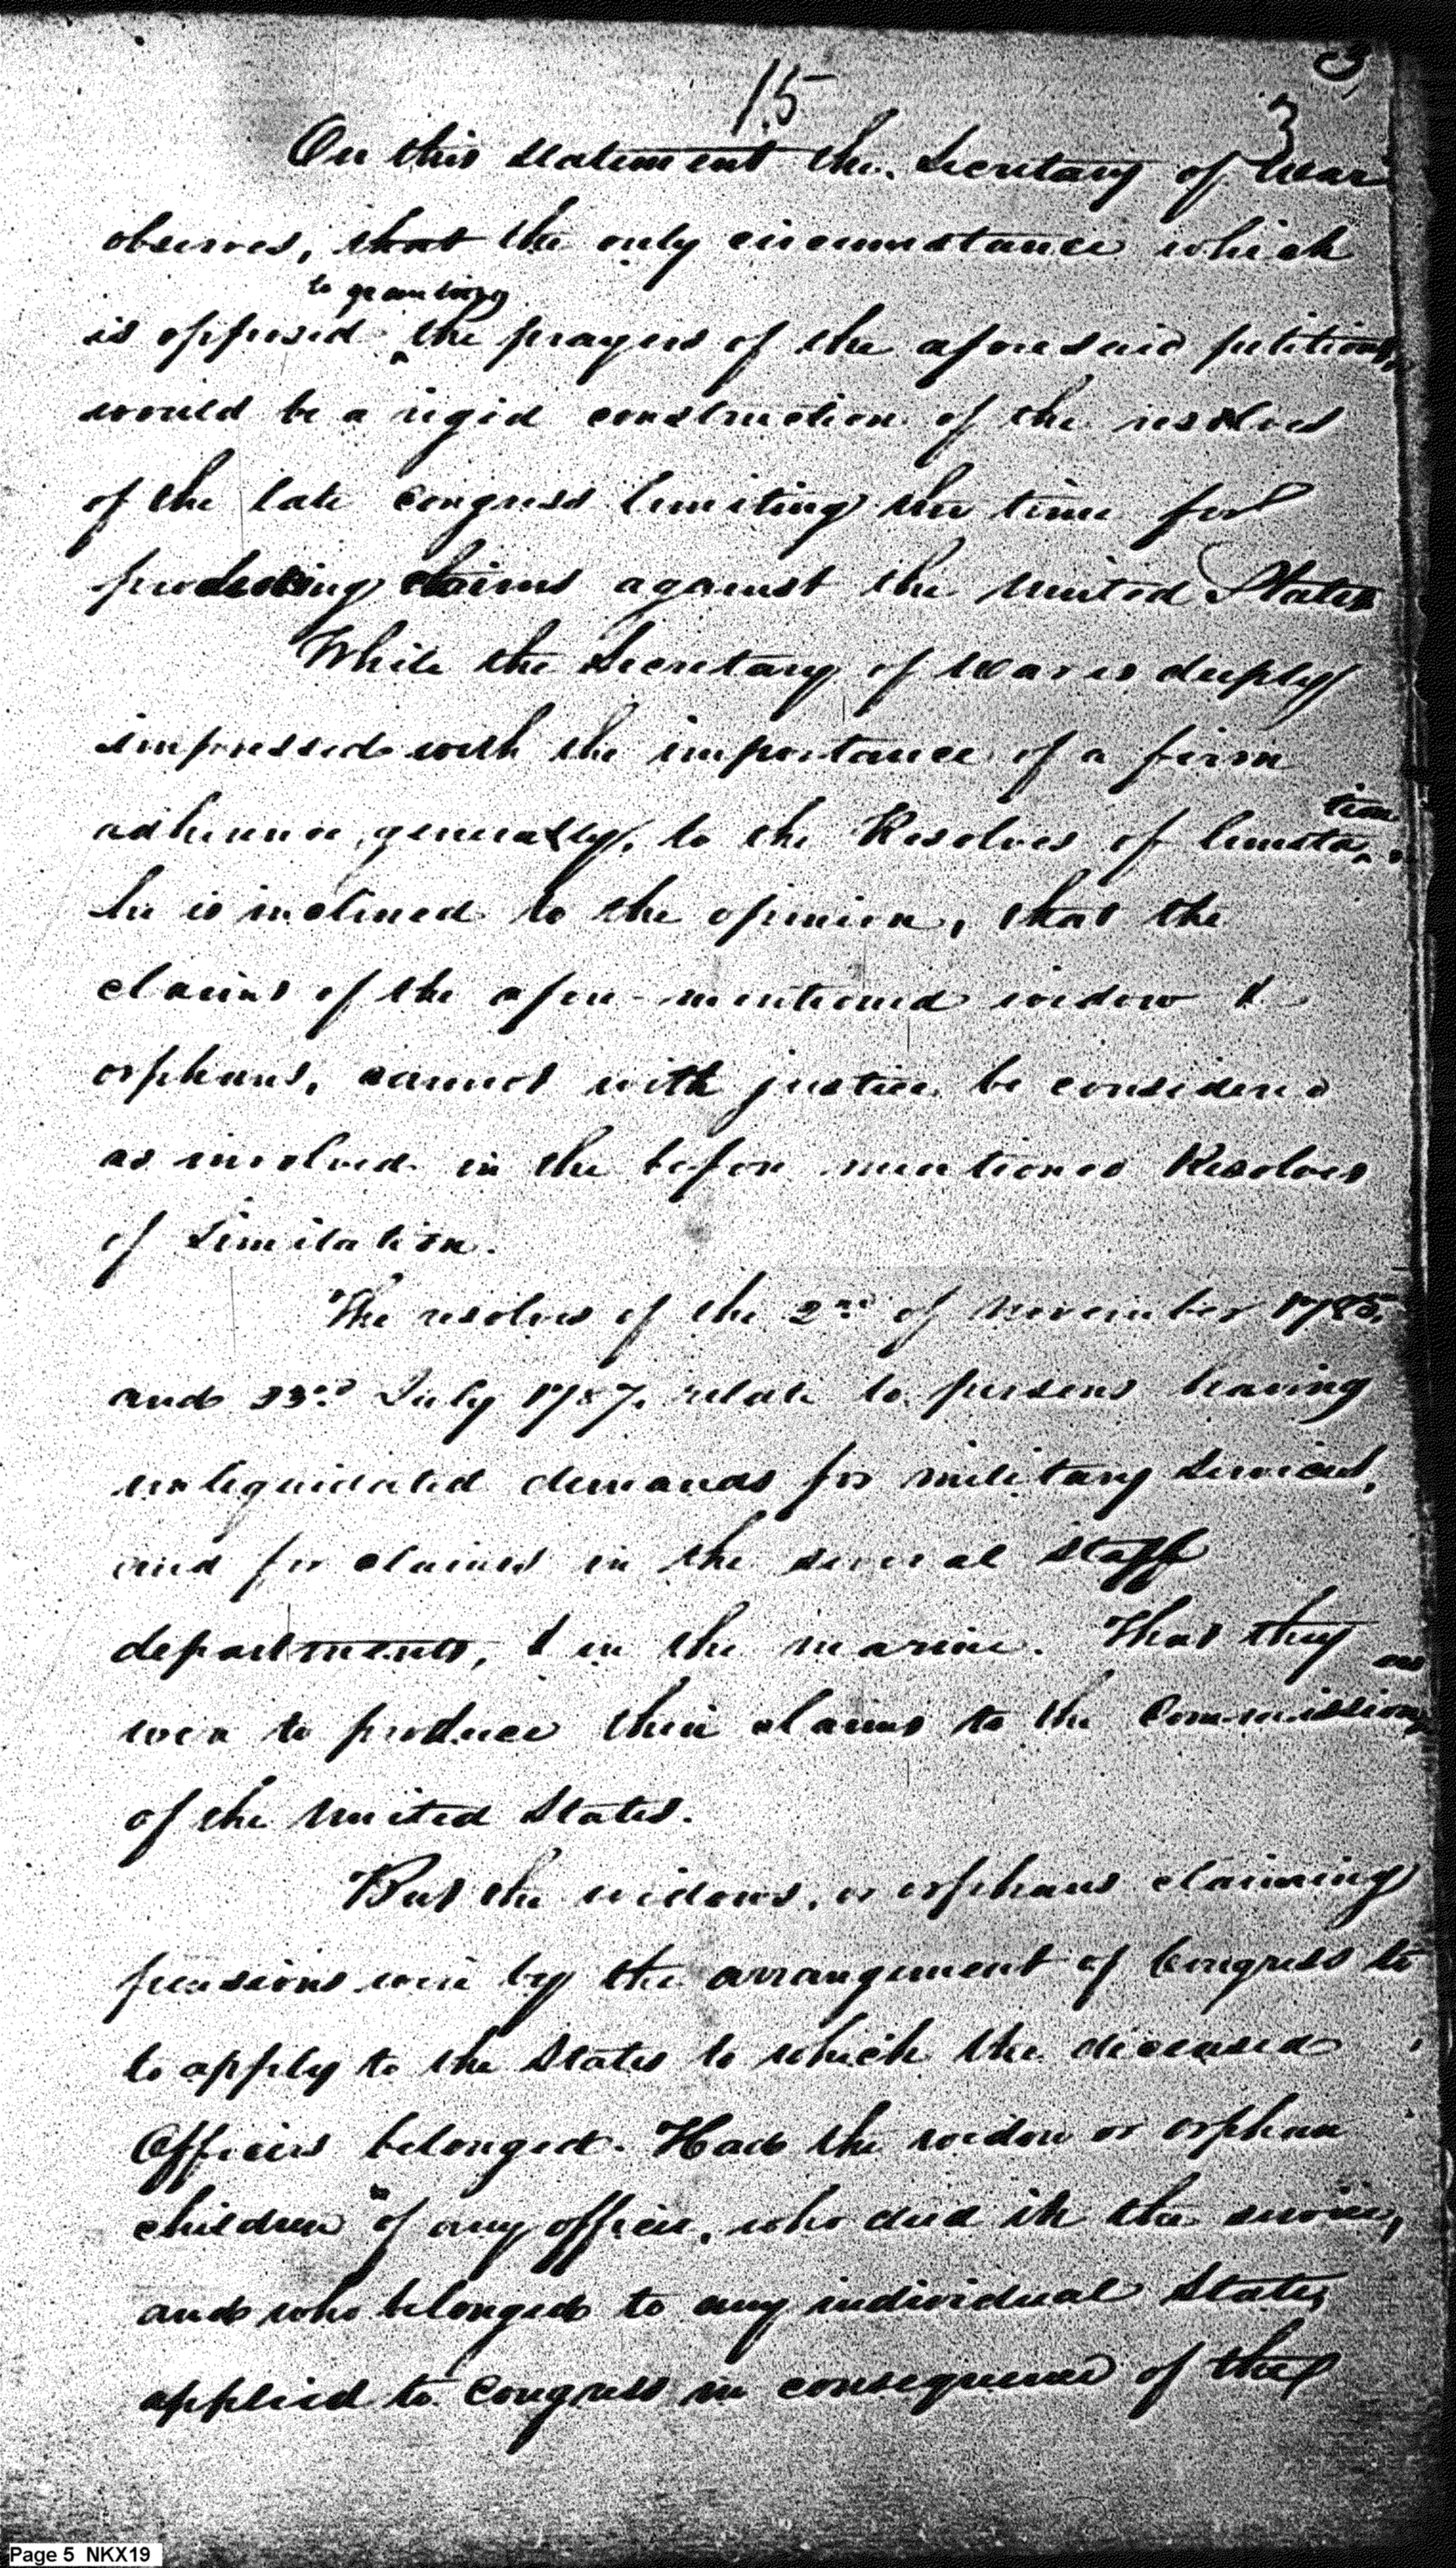 3
15
3
On this statement the Secretary of War
observes, that the only circumstance which
to granting
is opposed ^ the prayers of the aforesaid petitions,
would be a rigid construction of the resolves
of the late Congress limiting the time for
producing claims against the United States
While the Secretary of War is deeply
impressed with the importance of a firm
tion
adherence, generally, to the Resolves of limita^
he is inclined to the opinion, that the
claims of the afore-mentioned widow &
orphans, cannot with justice be considered
as involved in the before mentioned Resolves
of Limitation.
The resolves of the 2nd of November 1785,
and 23rd July 1787, relate to persons having
unliquidated demands for military services,
and for claims in the several staff
departments, & in the marine. That they
were to produce their claims to the Commissioners
of the United States.
But the widows, or orphans claiming
pensions were by the arrangement of Congress to
to apply to the States to which the deceased
Officers belonged. Had the widow or orphan
children of any officer, who died in the service,
and who belonged to any individual State,
applied to Congress in consequence of the
Page 5 NKX19